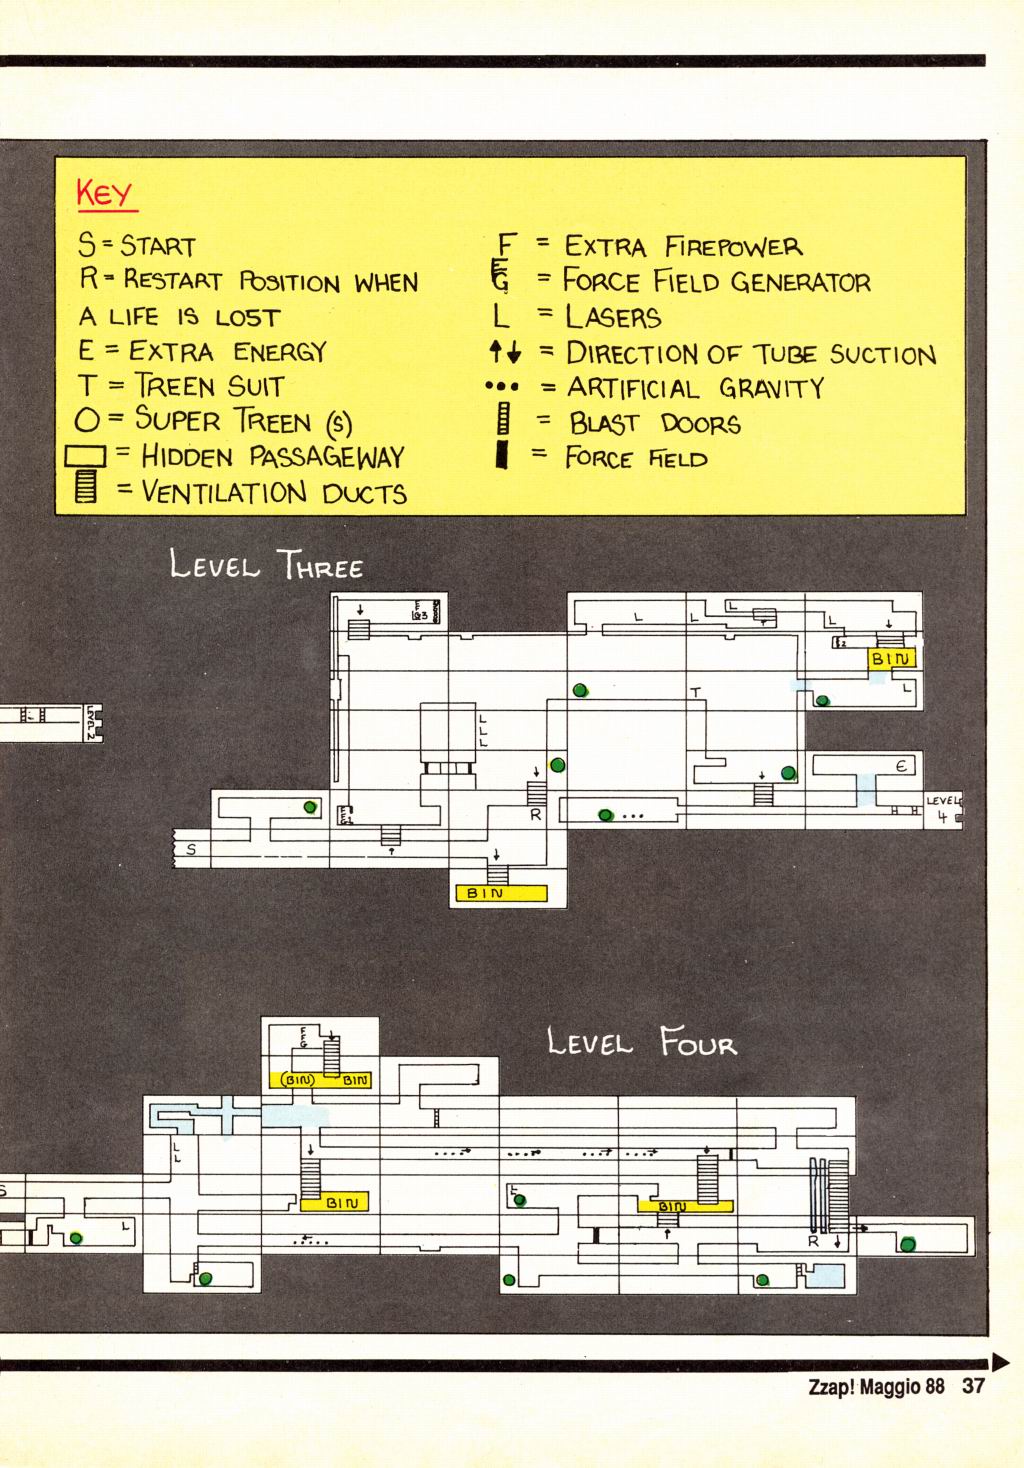 KEY
S = START
R = RESTART POSITION WHEN
A LIFE IS LOST
E = EXTRA ENERGY
T = TREEN SUIT
O = SUPER TREEN (S)
= HIDDEN PASSAGEWAY
= VENTILATION DUCTS
F = EXTRA FIREPOWER
FG = FORCE FIELD GENERATOR
L = LASERS
↑↓ = DIRECTION OF TUBE SUCTION
••• = ARTIFICIAL GRAVITY
= BLAST DOORS
= FORCE FIELD
LEVEL THREE
L
L
L
L
BIN
L
T
LEVEL 2
L
L
L
E
R
LEVEL
4
S
BIN
LEVEL FOUR
F
F
G
(BIN) BIN
L
L
S
BIN
E
BIN
L
R
Zzap! Maggio 88 37